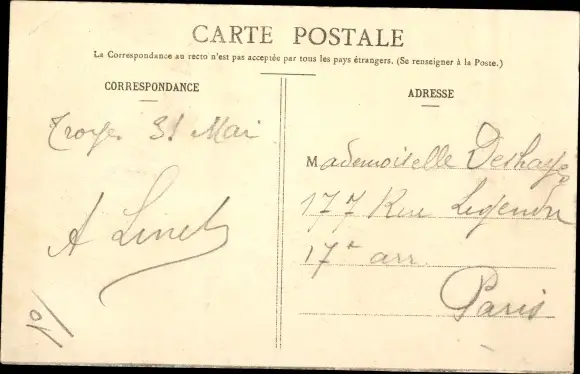 CARTE POSTALE
La Correspondance au recto n'est pas acceptée par tous les pays étrangers. (Se renseigner à la Poste.)
CORRESPONDANCE
Troyes 31 Mai
A Linet
ADRESSE
Mademoiselle Deshayes
177 Rue Legendre
17e arr.
Paris